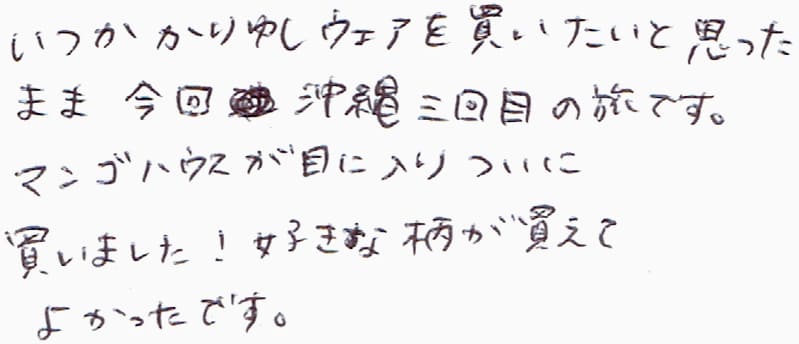 いつかかりゆしウェアを買いたいと思った
まま 今回 沖縄三回目の旅です。
マンゴハウスが目に入りついに
買いました！好きな柄が買えて
よかったです。